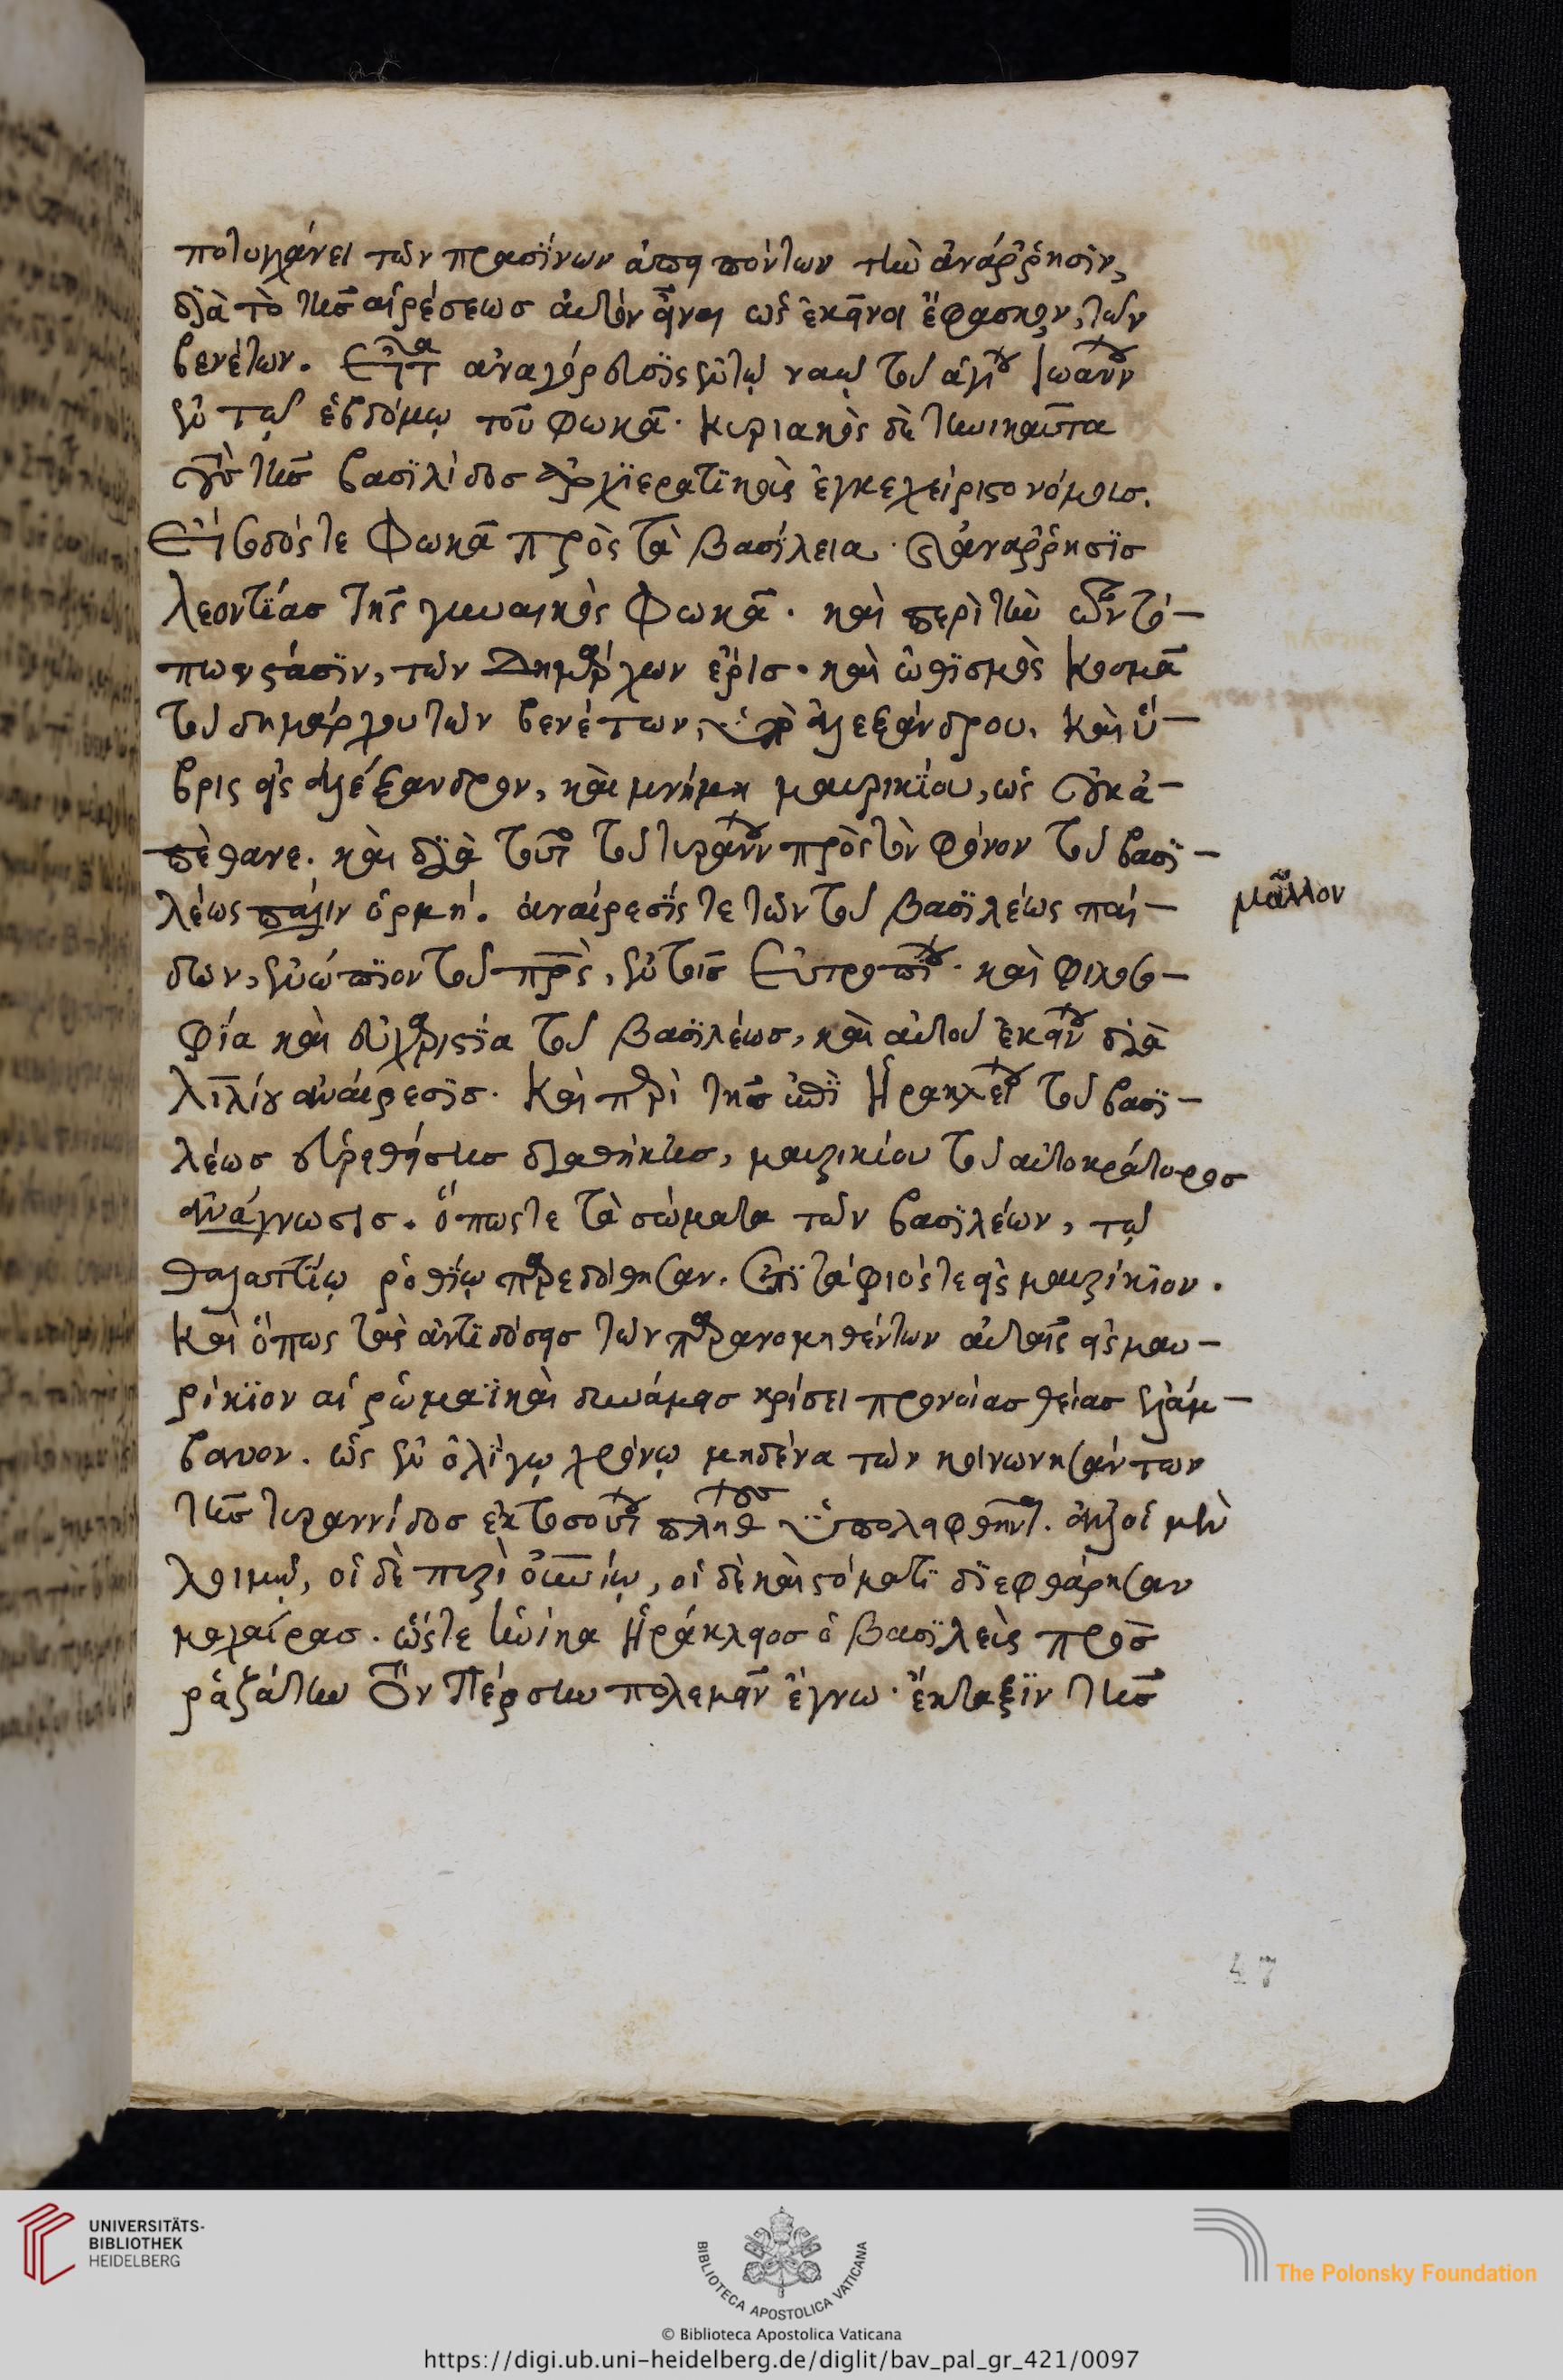 ποτυγχάνει τῶν πρασίνων ἀπειπόντων τὴν ἀνάρρησιν,
διὰ τὸ τῆς αἱρέσεως αὐτὸν εἶναι ὡς ἐκεῖνοι ἔφασκον, τῶν
βενέτων. Εἶτα ἀναγόρευσις ἐν τῷ ναῷ τοῦ ἁγίου Ἰωάννου
ἐν τῷ ἑβδόμῳ τοῦ Φωκᾶ. Κυριακὸς δὲ τηνικαῦτα
τοὺς τῆς βασιλίδος ἀρχιερατικοὺς ἐγκεχείριστο νόμους.
Εἴσοδός τε Φωκᾶ πρὸς τὰ βασίλεια. καὶ ἀνάρρησις
λεοντίας τῆς γυναικὸς Φωκᾶ. καὶ περὶ τὴν τῶν τό-
πων στάσιν, τῶν Δημάρχων ἔρις. καὶ ὠθισμὸς Κοσμᾶ
τοῦ δημάρχου τῶν βενέτων, ὑπὸ ἀλεξάνδρου. Καὶ ὕ-
βρις εἰς ἀλέξανδρον, καὶ μνήμη μαυρικίου, ὡς οὐκ ἀ-
πέθανε. καὶ διὰ τοῦτο τοῦ τυράννου πρὸς τὸν φόνον τοῦ βασι-
λέως πάλιν ὁρμή. ἀναίρεσίς τε τῶν τοῦ βασιλέως παί-
μᾶλλον
δων, ἐνώπιον τοῦ πατρὸς, ἐν τοῖς Εὐτροπίου. καὶ φιλοσο-
φία καὶ εὐχαριστία τοῦ βασιλέως, καὶ αὐτοῦ ἐκείνου διὰ
λιλίου ἀναίρεσις. Καὶ περὶ τῆς ἐπὶ Ἡρακλείου τοῦ βασι-
λέως εὑρεθείσης διαθήκης, μαυρικίου τοῦ αὐτοκράτορος
ἀνάγνωσις. ὅπως τε τὰ σώματα τῶν βασιλέων, τῷ
θαλαττίῳ ῥοθίῳ παρεδόθησαν. Ἐπιτάφιός τε εἰς μαυρίκιον.
Καὶ ὅπως τὰς ἀντιδόσεις τῶν παρανομηθέντων αὐταῖς εἰς μαυ-
ρίκιον αἱ ῥωμαϊκαὶ δυνάμεις κρίσει προνοίας θείας ἐλάμ-
βανον. ὡς ἐν ὀλίγῳ χρόνῳ μηδένα τῶν κοινωνησάντων
τῆς τυραννίδος ἐκ τοσούτου πλήθους ὑπολειφθῆναι. ἀλλ' οἱ μὲν
λοιμῷ, οἱ δὲ πυρὶ οὐρανίῳ, οἱ δὲ καὶ στόματι διεφθάρησαν
μαχαίρας. ὥστε ἡνίκα Ἡράκλειος ὁ βασιλεὺς πρὸς
ῥαζάτην τὸν Πέρσην πολεμεῖν ἔγνω. ἔκταξιν τῆς
47
UNIVERSITÄTS-
BIBLIOTHEK
HEIDELBERG
BIBLIOTECA APOSTOLICA VATICANA
The Polonsky Foundation
© Biblioteca Apostolica Vaticana
https://digi.ub.uni-heidelberg.de/diglit/bav_pal_gr_421/0097